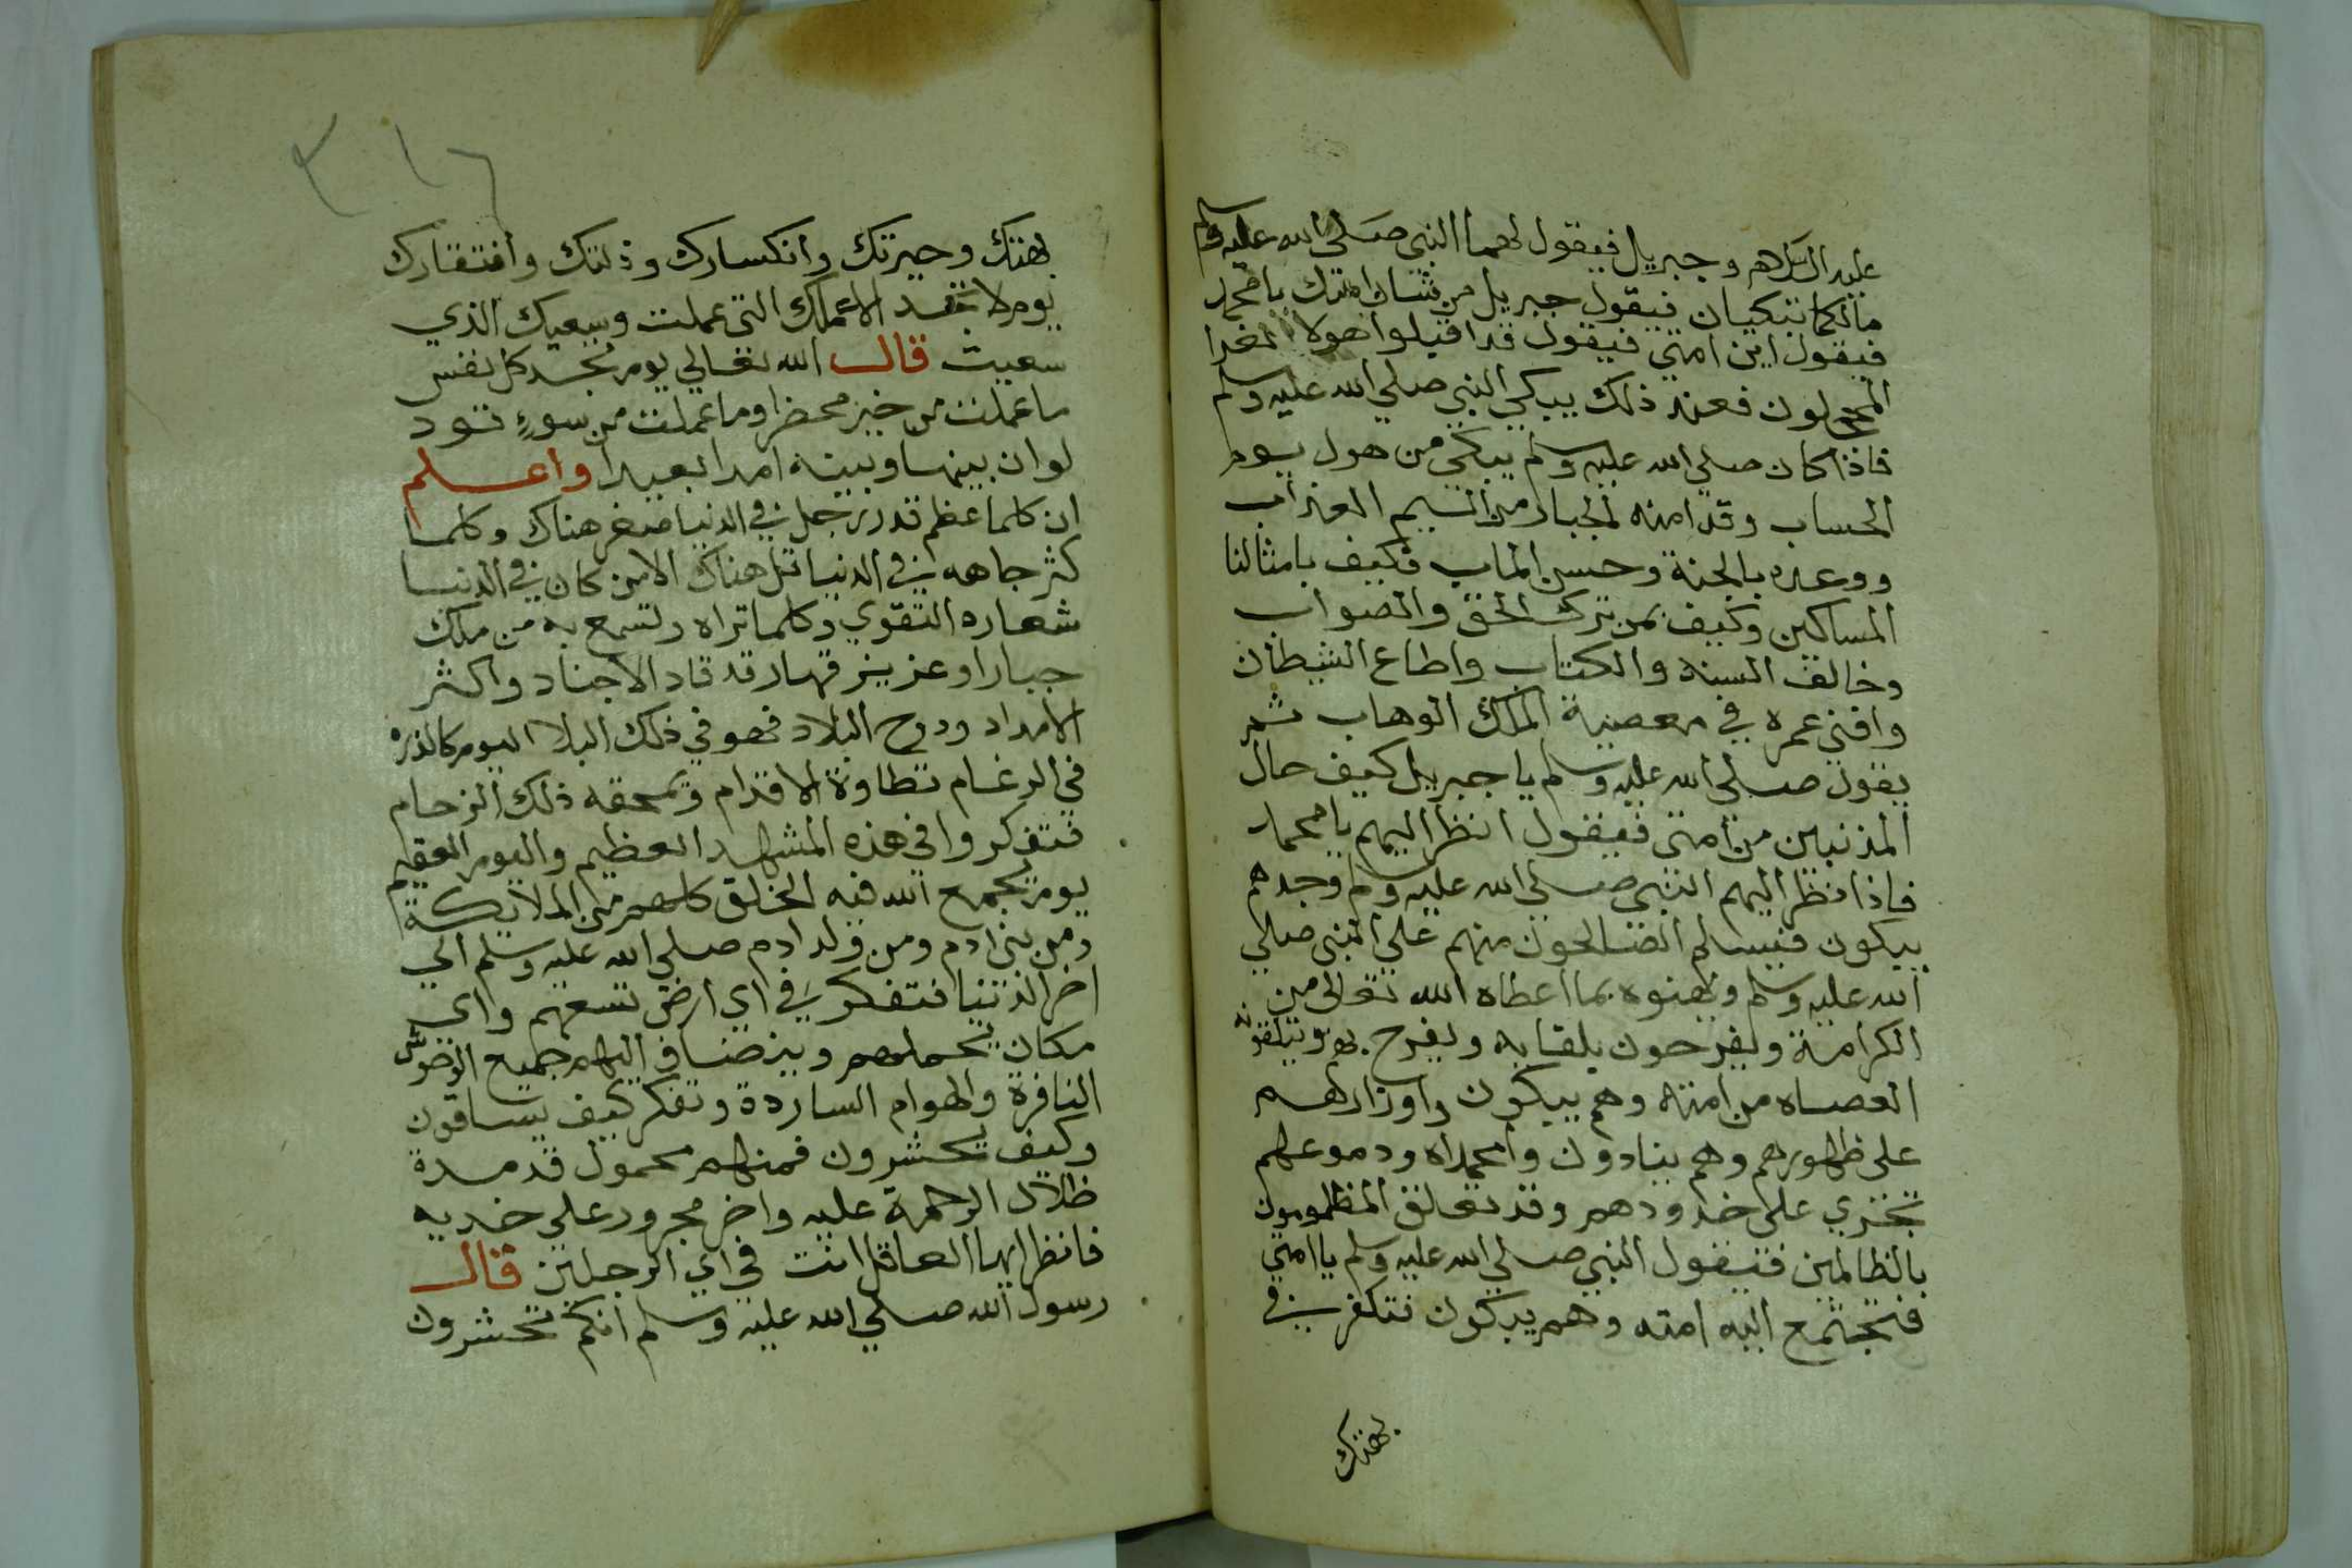 عليه السلام وجبريل فيقول لهما النبي صلى الله عليه وسلم
مالكما تبكيان فيقول جبريل من شان امتك يا محمد
فيقول اين امتي فيقول قد اقبلوا هولا
المحجلون فعند ذلك يبكي النبي صلي الله عليه وسلم
فاذا كان صلي الله عليه وسلم يبكي من هول يوم
الحساب وقد امنه الجبار من اليم العذاب
ووعده بالجنة وحسن الماب فكيف بامثالنا
المساكين وكيف بمن ترك الحق والصواب
وخالف السنة والكتاب واطاع الشيطان
وافني عمره في معصية الملك الوهاب ثم
يقول صلي الله عليه وسلم يا جبريل كيف حال
المذنبين من امتي فيقول انظر اليهم يا محمد
فاذا نظر اليهم النبي صلي الله عليه وسلم وجدهم
يبكون فيسلم الصالحون منهم علي النبي صلي
الله عليه وسلم ويهنوه بما اعطاه الله تعالى من
الكرامة ويفرحون بلقايه ويفرح بهم
العصاه من امته وهم يبكون واوزارهم
على ظهورهم وهم ينادون وامحمداه ودموعهم
تجري على خدودهم وقد تعلق المظلومون
بالظالمين فيقول النبي صلي الله عليه وسلم يا امتي
فتجتمع اليه امته وهم يبكون فتكفر في
بهتتك
٣١٦
بهتتك وحيرتك وانكسارك وذلتك وافتقارك
يوم لا تجد الا عملك التي عملت وسعيك الذي
سعيت قال الله تعالي يوم تجد كل نفس
ما عملت من خير محضرا وما عملت من سوءٍ تود
لو ان بينها وبينه امدا بعيدا واعلم
ان كلما عظم قدر رجل في الدنيا صغر هناك وكلما
كثر جاهه في الدنيا قل هناك الا من كان في الدنيا
شعاره التقوي وكلما تراه وتسمع به من ملك
جبار او عزيز قهار قد قاد الاجناد واكثر
الامداد ودوح البلاد فهو في ذلك البلا اليوم كالذره
في الرغام تطاوة الاقدام وتمحقه ذلك الزحام
فتفكروا في هذه المشهد العظيم واليوم العقيم
يوم يجمع الله فيه الخلق كلهم من الملايكة
ومن بني ادم ومن ولد ادم صلي الله عليه وسلم الي
اخر الدنيا فتفكر في اي ارض تسعهم واي
مكان يحملهم وينضاف اليهم جميع الوحوش
النافرة والهوام الساردة وتفكر كيف يساقون
وكيف يحشرون فمنهم محمول قد مدة
ظلال الرحمة عليه واخر مجرور علي خديه
فانظر ايها العاقل انت في اي الرجلين قال
رسول الله صلي الله عليه وسلم انكم تحشرون